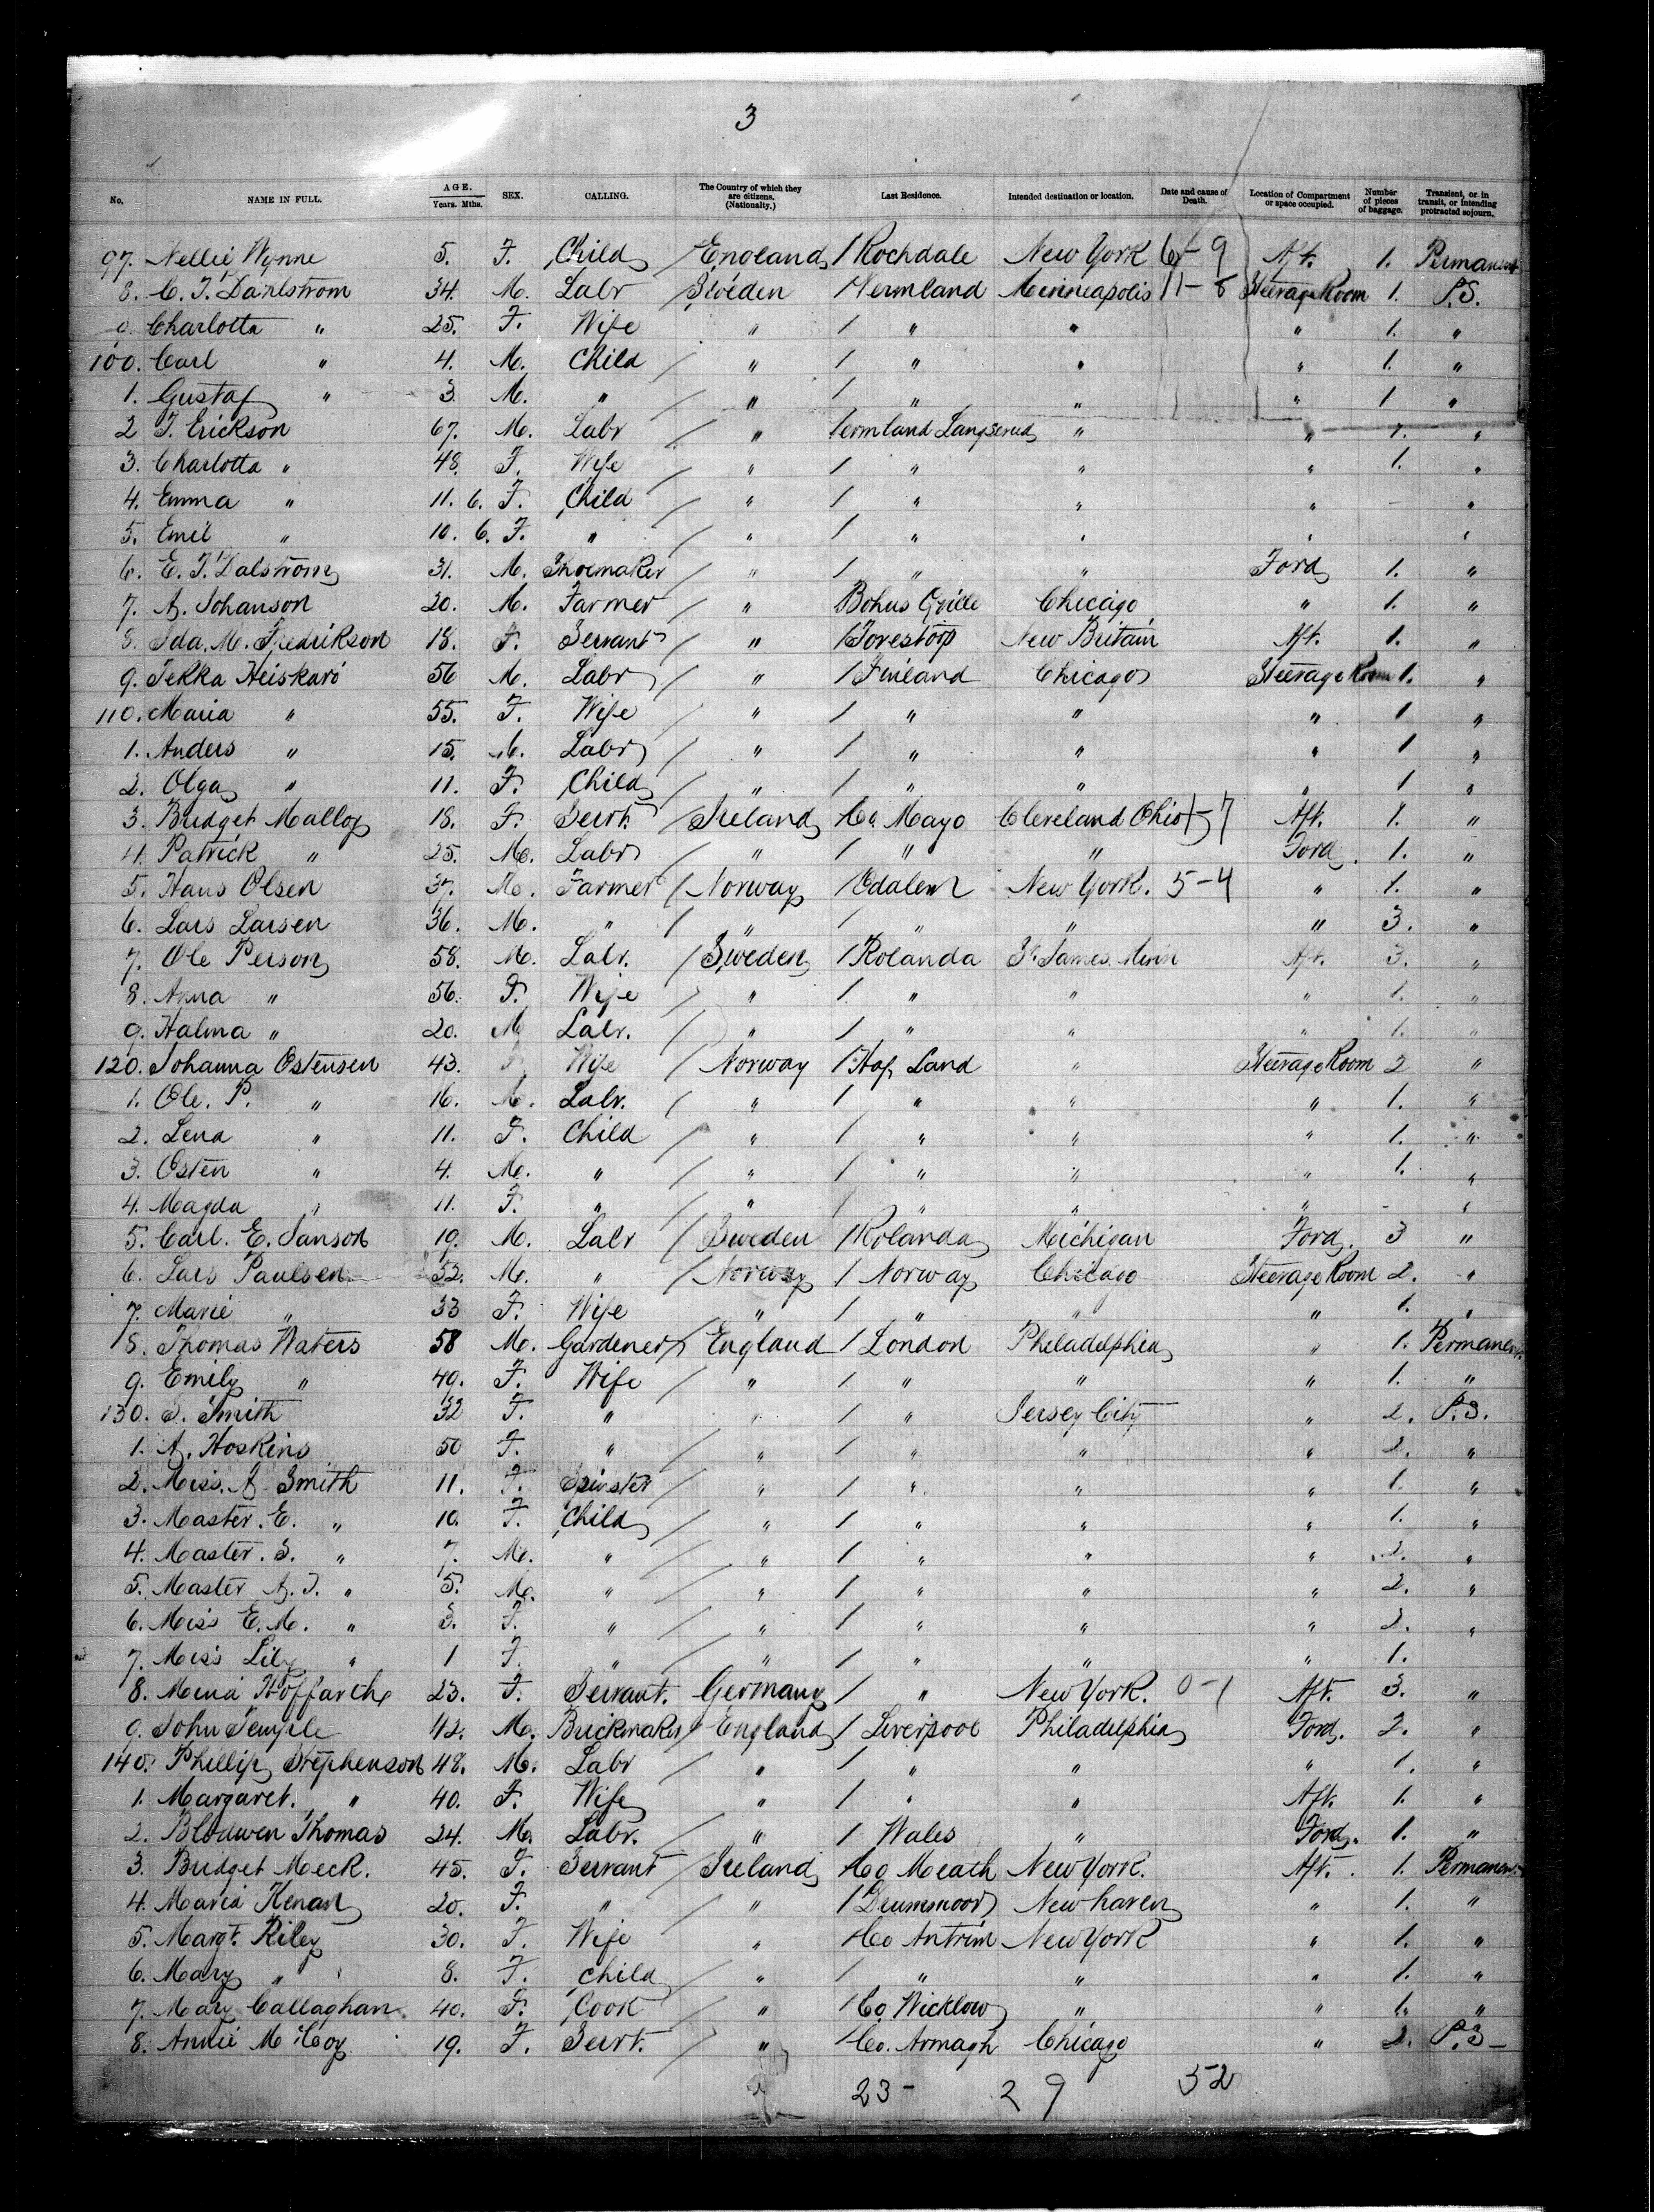 3
No. NAME IN FULL. AGE. Years. Mths. SEX. CALLING. The Country of which they are citizens. (Nationality.) Last Residence. Intended destination or location. Date and cause of Death. Location of Compartment or space occupied. Number of pieces of baggage. Transient, or in transit, or intending protracted sojourn.
97. Nellie Wynne 5. F. Child England / Rochdale New York 9 Aft. 1. Permanent
8. C. J. Dahlstrom 34. M. Labr Sweden / Vermland Minneapolis 11-8 Steerage Room 1. P.S.
9. Charlotta " 25. F. Wife " / " " " 1. "
100. Carl " 4. M. Child / " / " " " 1. "
1. Gustaf " 3. M. " / " / " " " 1 "
2 J. Erickson 67. M. Labr / " Vermland Langserud " " 1. "
3. Charlotta " 48. F. Wife / " / " " " 1. "
4. Emma " 11. 6. F. Child / " / " " " - "
5. Emil " 10. 6. F. " / " / " " " "
6. E. J. Dalstrom 31. M. Shoemaker / " / " " Ford 1. "
7. A. Johanson 20. M. Farmer / " Bohus Chicago " 1. "
8. Ida. M. Fredrikson 18. F. Servant " / Torestorp New Britain Aft. 1. "
9. Pekka Heiskari 56 M. Labr / " / Finland Chicago Steerage Room 1. "
110. Maria " 55. F. Wife / " / " " " 1 "
1. Anders " 15. M. Labr / " / " " " 1 "
2. Olga " 11. F. Child / " / " " " 1 "
3. Bridget Malloy 18. F. Servt. Ireland Co. Mayo Cleveland Ohio 7 Aft. 1. "
4. Patrick " 25. M. Labr " / " " Ford. 1. "
5. Hans Olsen 37. M. Farmer / Norway / Odalen New York. 5-4 " 1. "
6. Lars Larsen 36. M. " / " / " " " 3. "
7. Ole Person 58. M. Labr. / Sweden / Rolanda St. James. Minn Aft. 3. "
8. Anna " 56. F. Wife / " / " " " 1. "
9. Halma " 20. M Labr. / " / " " " 1. "
120. Johanna Ostensen 43. F. Wife / Norway / Hof Land " Steerage Room 2 "
1. Ole. P. " 16. M. Labr. / " / " " " 1. "
2. Lena " 11. F. Child / " / " " " 1. "
3. Osten " 4. M. " / " / " " " 1. "
4. Magda " 11. F. " / " / " " " - "
5. Carl. E. Janson 19. M. Labr / Sweden / Rolanda Michigan Ford. 3 "
6. Lars Paulsen 52. M. " / Norway / Norway Chicago Steerage Room 2. "
7. Marie " 33 F. Wife / " / " " " 1. "
8. Thomas Waters 58 M. Gardener / England / London Philadelphia " 1. Permanent
9. Emily " 40. F. Wife / " / " " " 1. "
130. S. Smith 32 F. " / " / " Jersey City " 2. P.S.
1. A. Hoskins 50 F. " / " / " " " 2. "
2. Miss. A. Smith 11. F. Spinster / " / " " " 1. "
3. Master. E. " 10. F. Child / " / " " " 1. "
4. Master. S. " 7. M. " / " / " " " 2. "
5. Master A. J. " 5. M. " / " / " " " 2. "
6. Miss E. M. " 3. F. " / " / " " " 2. "
7. Miss Lily " 1 F. " / " / " " " 1.
8. Mina Hoffarth 23. F. Servant. Germany / " New York. 0-1 Aft. 3. "
9. John Temple 42. M. Brickmaker / England / Liverpool Philadelphia Ford. 2. "
140. Phillip Stephenson 48. M. Labr / " / " " " 1. "
1. Margaret. " 40. F. Wife / " / " " Aft. 1. "
2. Blodwen Thomas 24. M. Labr. / " / Wales " Ford. 1. "
3. Bridget Meek. 45. F. Servant / Ireland Co Meath New York. Aft. 1. Permanent
4. Maria Kenan 20. F. " / " / New haven " 1. "
5. Margt. Riley 30. F. Wife " Co Antrim New York " 1. "
6. Mary " 8. F. child " / " " " 1. "
7. Mary Callaghan 40. F. Cook " / Co. Wicklow " " 1. "
8. Annie McCoy 19. F. Servt. " Co. Armagh Chicago " 2. P.S-
23- 29 52